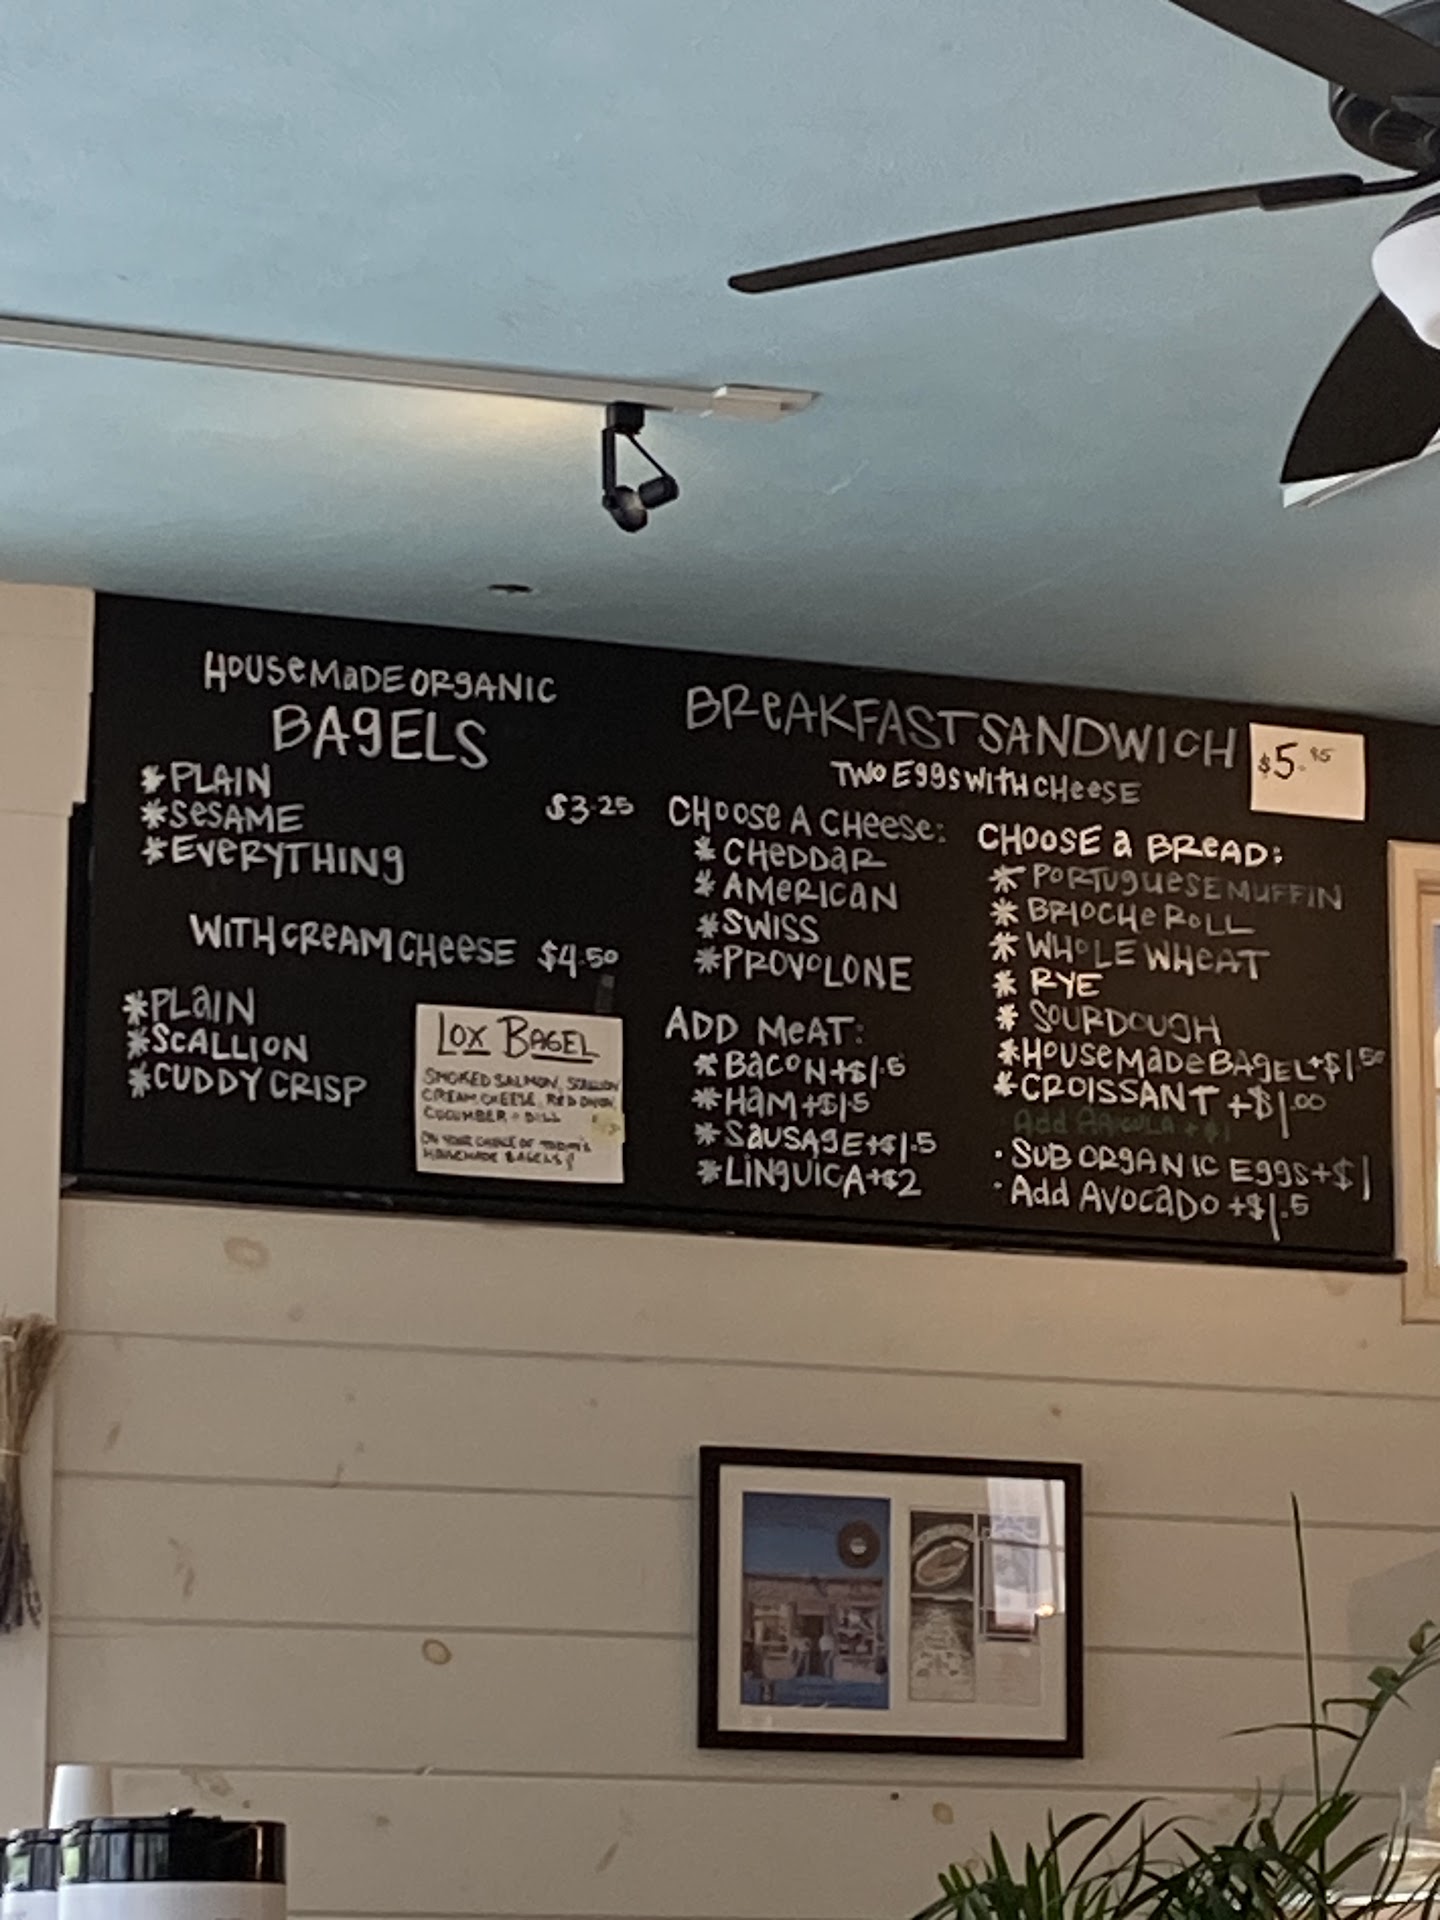 HOUSEMADE ORGANIC
BAGELS
* PLAIN
* SESAME
* EVERYTHING
$3.25
WITH CREAM CHEESE $4.50
* PLAIN
* SCALLION
* CUDDY CRISP
LOX BAGEL
SMOKED SALMON, SCALLION
CREAM CHEESE, RED ONION
CUCUMBER + DILL
ON YOUR CHOICE OF TODAY'S
HOMEMADE BAGELS!
BREAKFAST SANDWICH $5.95
TWO EGGS WITH CHEESE
CHOOSE A CHEESE:
* CHEDDAR
* AMERICAN
* SWISS
* PROVOLONE
ADD MEAT:
* BACON +$1.5
* HAM +$1.5
* SAUSAGE +$1.5
* LINGUICA +$2
CHOOSE A BREAD:
* PORTUGUESE MUFFIN
* BRIOCHE ROLL
* WHOLE WHEAT
* RYE
* SOURDOUGH
* HOUSEMADE BAGEL +$1.50
* CROISSANT +$1.00
Add ARUGULA +$1
· SUB ORGANIC EGGS +$1
· Add AVOCADO +$1.5